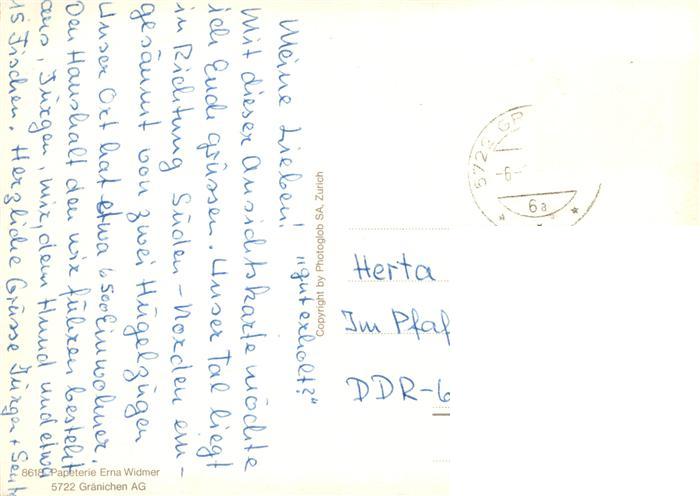 Meine Lieben! "guterholt?"
Mit dieser Ansichtskarte möchte
ich Euch grüssen. Unser Tal liegt
in Richtung Süden-Norden ein-
gesäumt von zwei Hügelzügen
Unser Ort hat etwa 6500 Einwohner.
Den Haushalt den wir führen besteht
aus, Jürgen, mir, dem Hund und etwa
15 Fischen. Herzliche Grüsse Jürgen +
Copyright by Photoglob SA, Zurich
5722 GR
-6.-
6a
Herta
Im Pfaf
DDR-6
8618 Papeterie Erna Widmer
5722 Gränichen AG